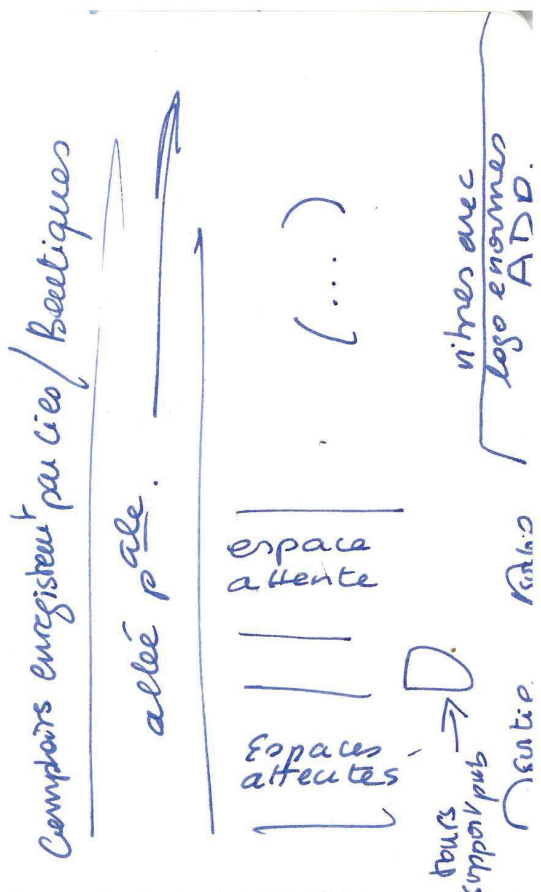 Comptoirs enregistremt par Cies / Boutiques
allée pale.
Espaces
attentes
espace
attente
(...)
tours
support/pub
sortie
sortie
vitres avec
logo enormes
ADP.